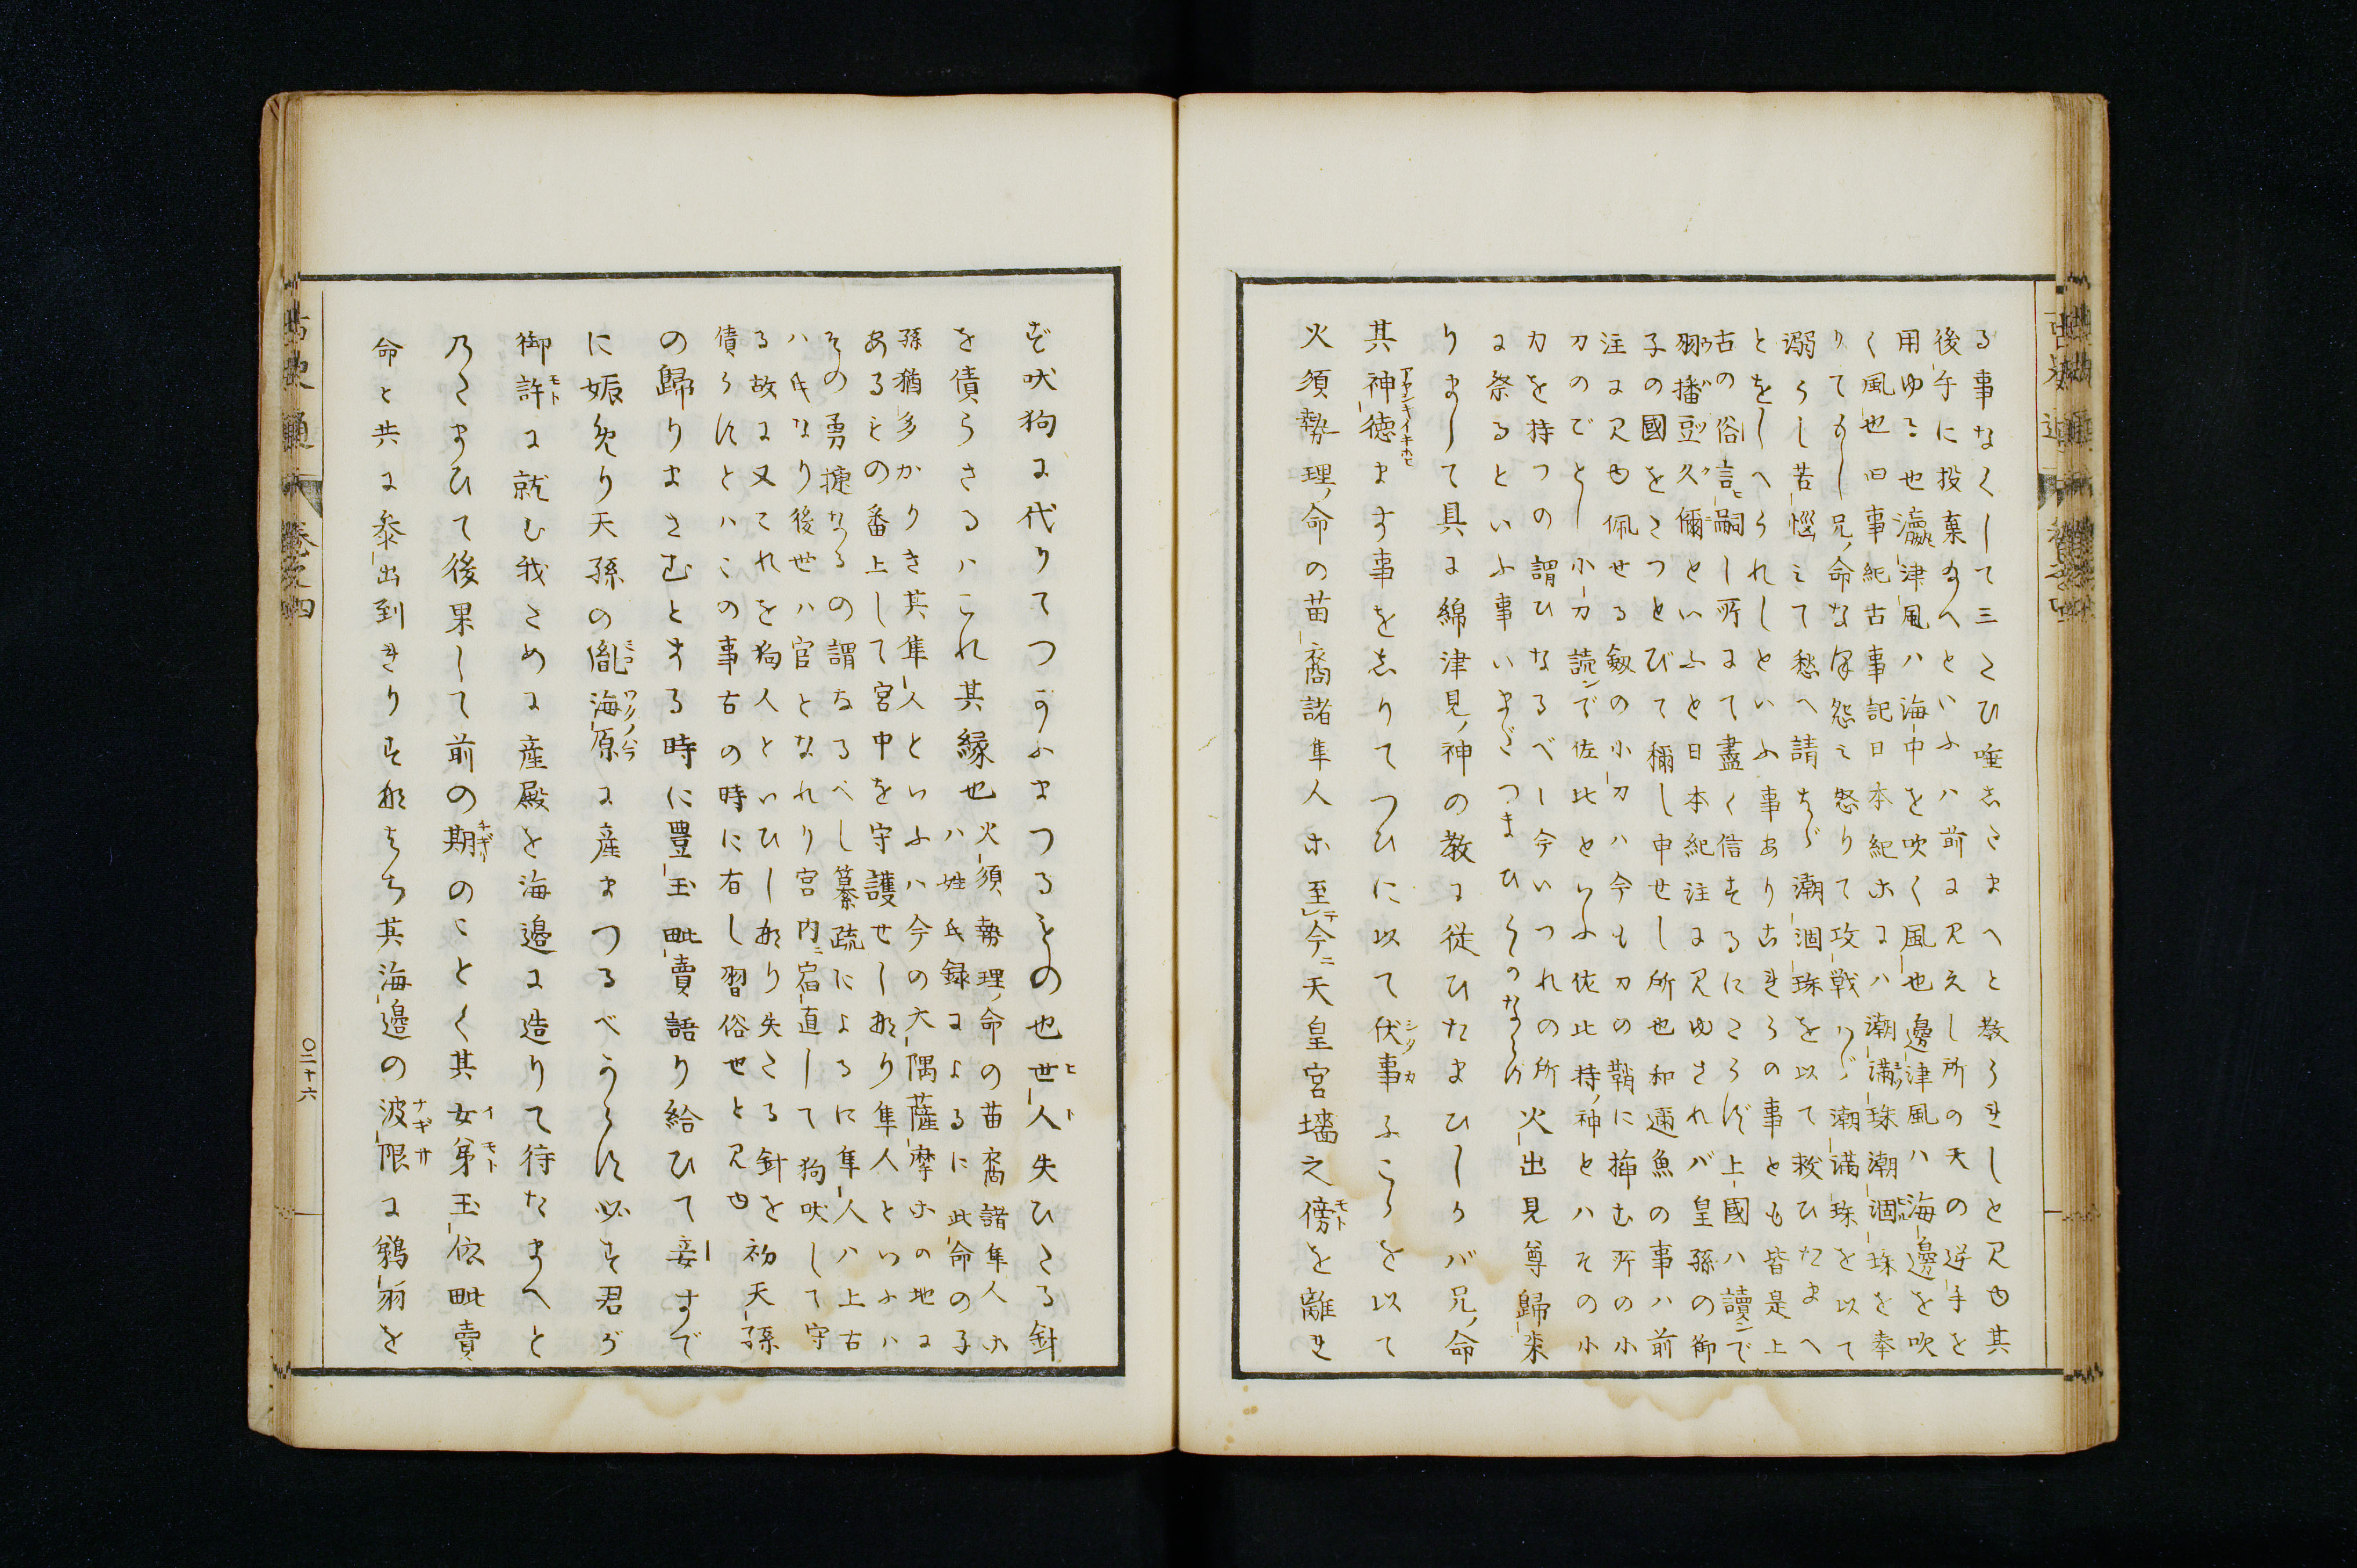 る事なくして三たび唾したまへと教られしと見ゆ其
後手に投棄給へといふハ前に見えし所の天の逆手を
用ゆる也瀛津風ハ海中を吹く風也邊津風ハ海邊を吹
く風也旧事紀古事記日本紀ホにハ潮満珠潮涸珠を奉
りてもし兄命な保怨み怒りて攻戦りバ潮満珠を以て
溺らし苦惱みて愁へ請さバ潮涸珠を以て救ひたまへ
とをしへられしといふ事あり古きろの事とも皆是上
古の俗言と嗣し所にて盡く信ずるにたらず上國ハ讀ンで
羽播豆久儞といふと日本紀注に見ゆされバ皇孫の御
子の國をさつとびて稱し申せし所也和邇魚の事ハ前
注に見ゆ佩せる劔の小刀ハ今も刀の鞘に挿む所の小
刀のごとし小刀読ンで佐比といふ佐比持ノ神とハその小
刀を持つの謂ひなるべし今いつれの所
に祭るといふ事いまだつまひらかならず
火出見尊歸来
りまして具に綿津見ノ神の教に従ひたまひしかバ兄ノ命
其神徳ます事をしりてつひに以て伏事ふこらを以て
火須勢理ノ命の苗裔諸隼人ホ至今ニ天皇宮墻之傍を離き
ず吠狗に代りてつかふまつるもの也世人失ひたる針
を債らさるハこれ其縁也
火須勢理ノ命の苗裔諸隼人ホ
ハ姓氏録によるに此命の子
孫猶多かりき其隼人といふハ今の大隅薩摩ホの地に
あるもの番上して宮中を守護せし也隼人といふハ
その勇捷なるの謂なるべし纂疏によるに隼人ハ上古
ハ氏なり後世ハ官となれり宮内ニ宿直して狗吠して守
る故に又これを狗人といひし也失たる針を
債らずとハこの事古の時に有し習俗せと見ゆ
初天孫
の歸りまさむとする時に豊玉毗賣語り給ひて妾すで
に娠免り天孫の胤海原に産まつるべからず必ず君が
御許に就む我ために産殿を海邊に造りて待たまへと
乃たまひて後果して前の期のことく其女弟玉依毗賣
命と共に参出到きりすなはち其海邊の波限に鵜羽を
〇二十六